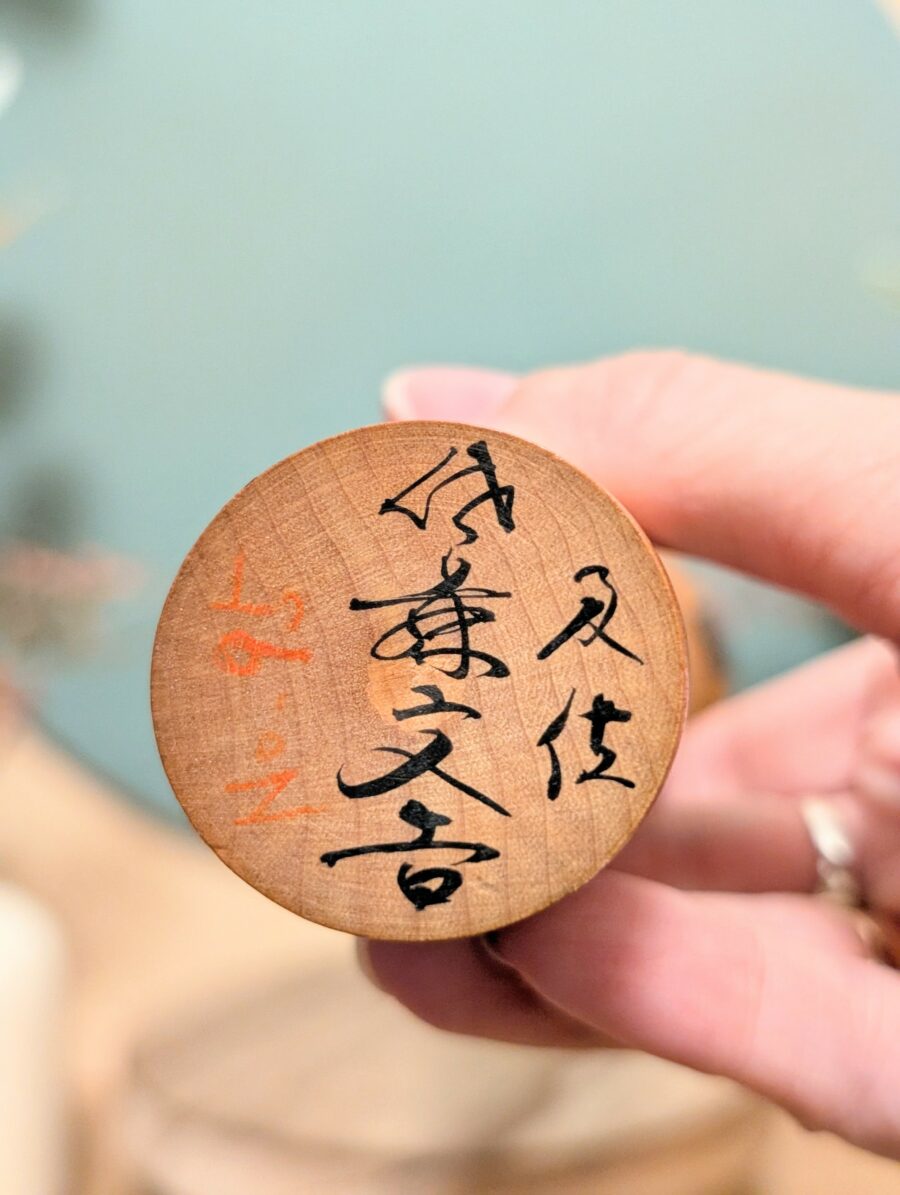 及位
佐藤文吉